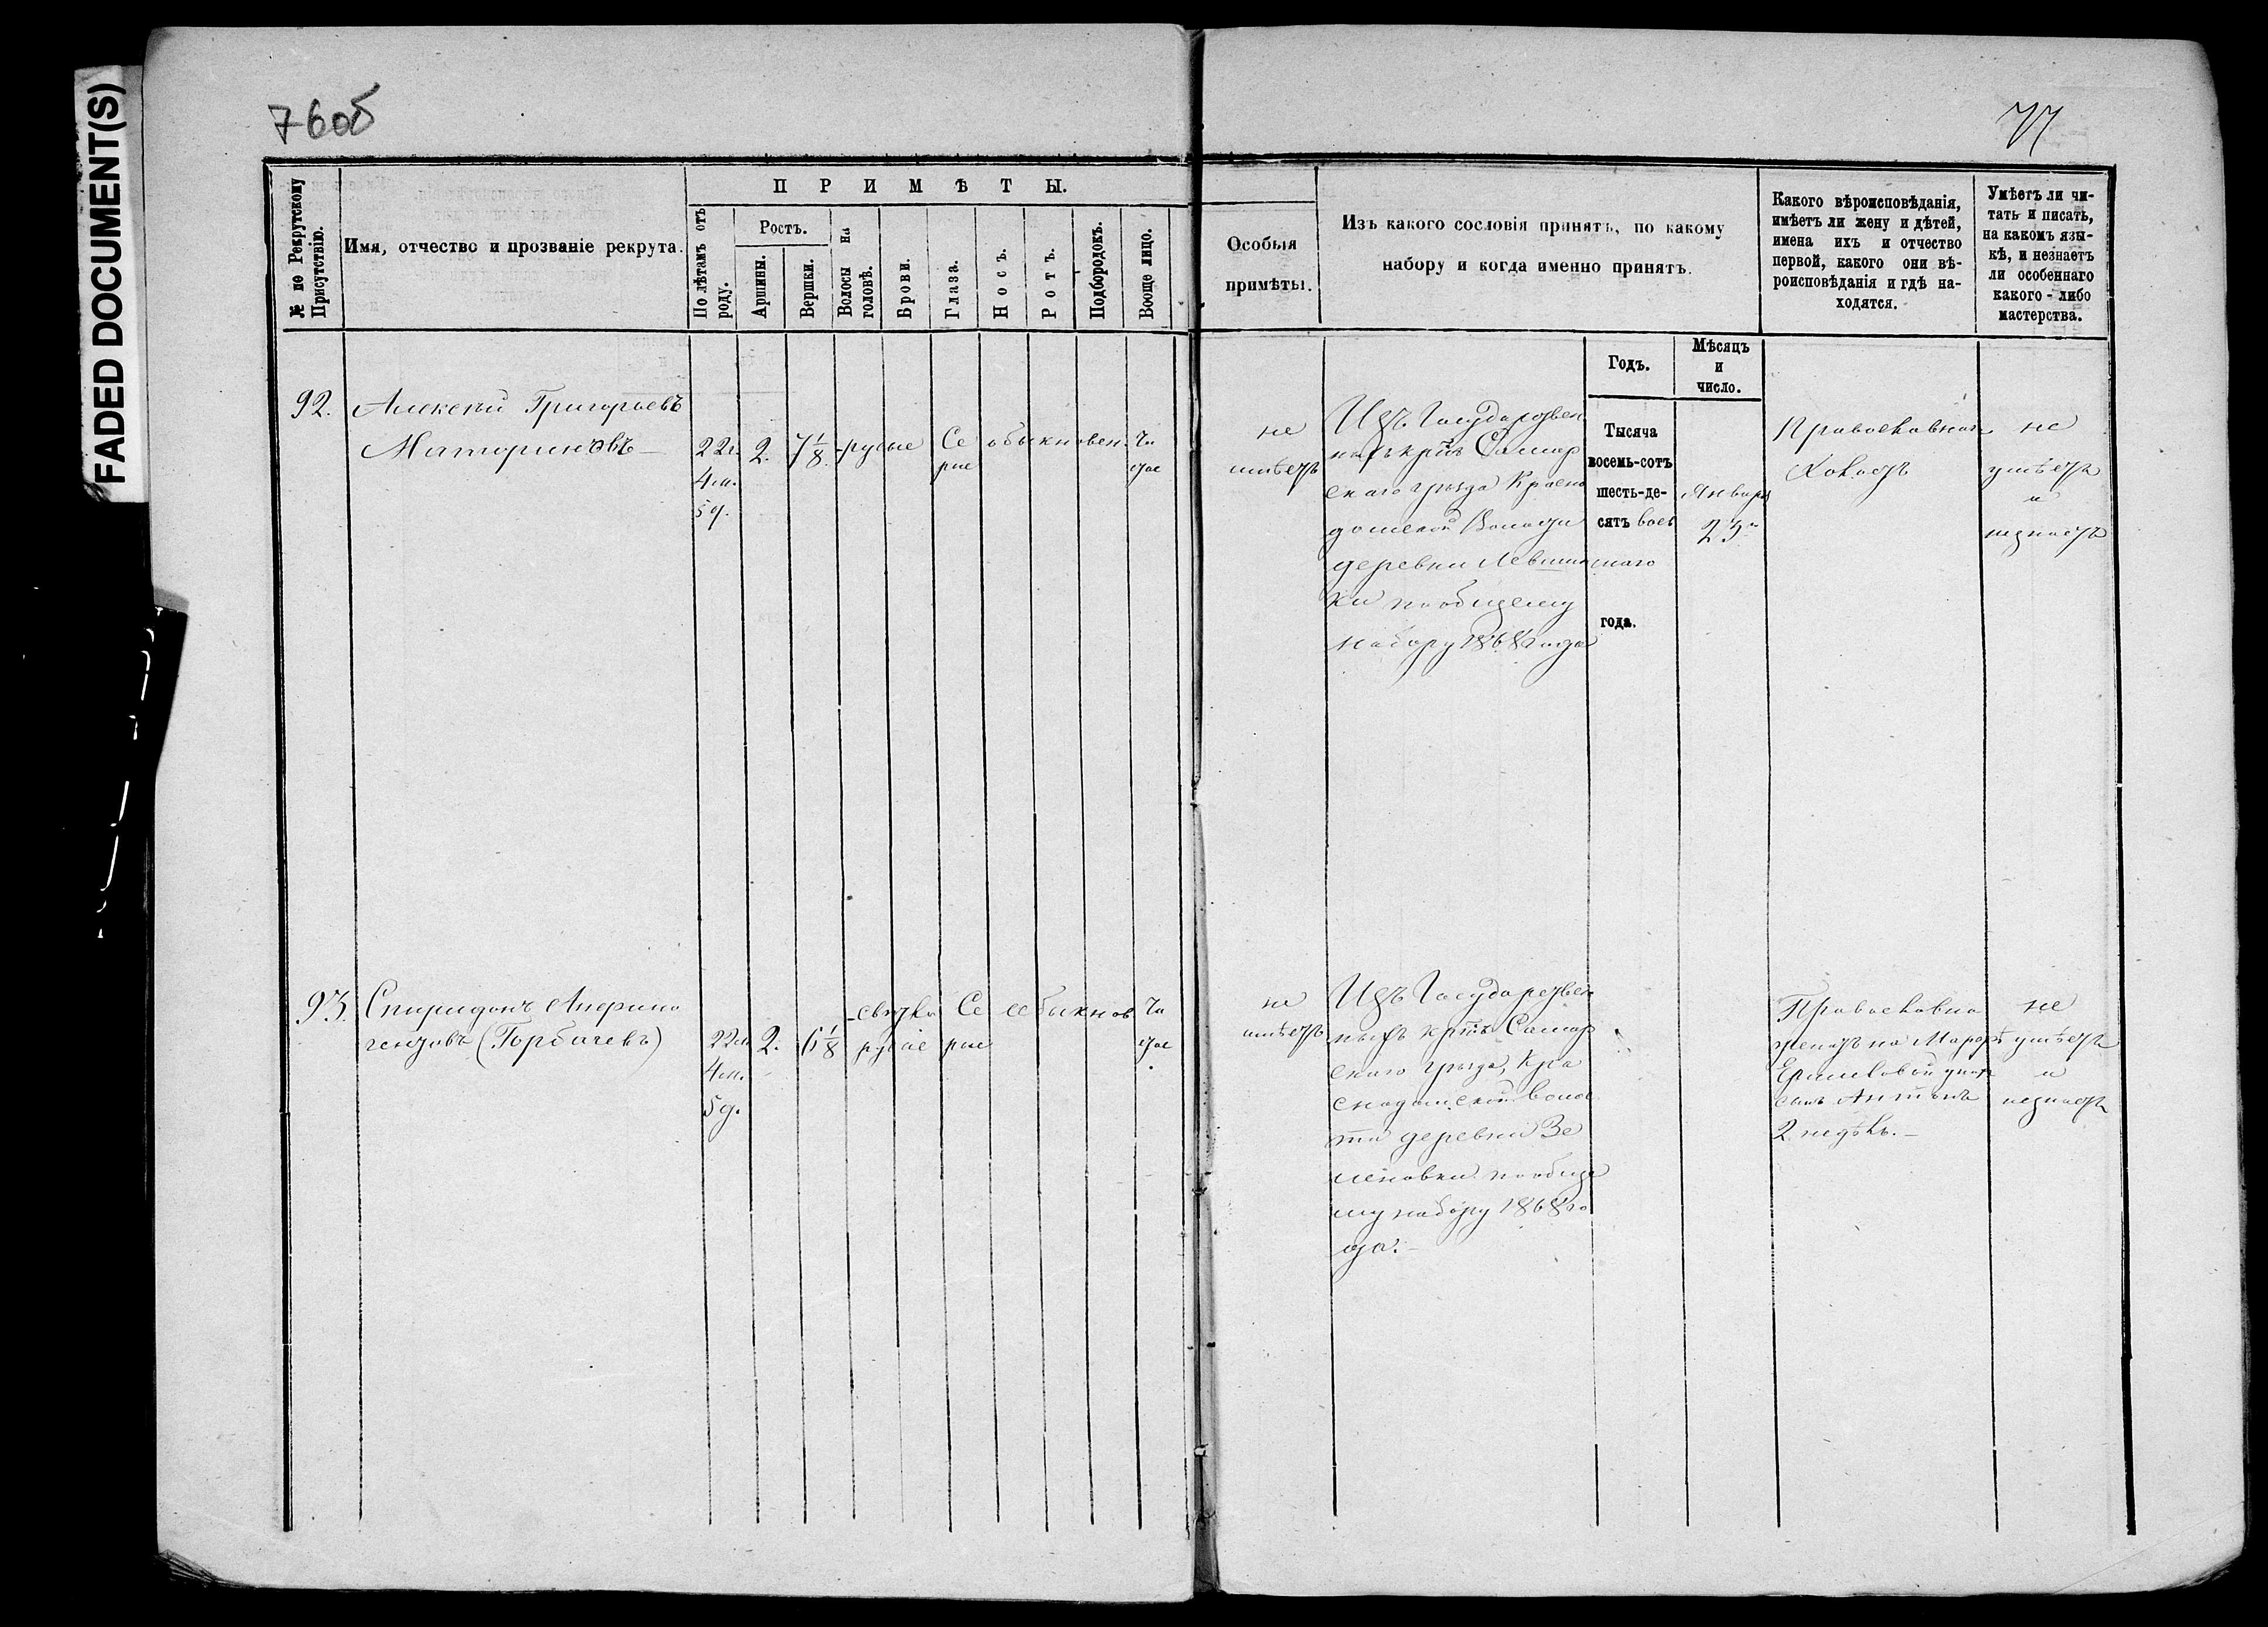 FADED DOCUMENT(S)
76об
77
№ по Рекрутскому Присутствію.
Имя, отчество и прозваніе рекрута.
ПРИМѢТЫ.
По лѣтамъ отъ роду.
Ростъ.
Аршины.
Вершки.
Волосы на головѣ.
Брови.
Глаза.
Носъ.
Ротъ.
Подбородокъ.
Вооще лицо.
Особыя
примѣты.
Изъ какого сословія принятъ, по какому
набору и когда именно принятъ.
Какого вѣроисповѣданія,
имѣетъ ли жену и дѣтей,
имена ихъ и отчество
первой, какого они вѣ-
роисповѣданія и гдѣ на-
ходятся.
Умѣетъ ли чи-
тать и писать,
на какомъ язы-
кѣ, и незнаетъ
ли особеннаго
какого-либо
мастерства.
Годъ.
Мѣсяцъ
и
число.
92.
Алексѣй Григорьевъ
Маторинъ
22л.
4м.
5д.
2.
7 1/8
русые
Се
рые
обыкновен.
чи
стое
не
имѣетъ
Изъ Государствен
ныхъ крт҃ъ Самар
скаго уѣзда Красно
домской Волости
деревни Левшин
ки по общему
набору 1868 года
Тысяча
восемь-сотъ
шесть-де-
сятъ вось
маго
года.
Января
23
Православнаго
Холостъ
не
умѣетъ
и
незнаетъ
93.
Спиридонъ
(Горбачевъ)
22л.
4м.
5д.
2.
6 1/8
свѣтло
русые
Се
рые
обыкнов
чи
стое
не
имѣетъ
Изъ Государствен
ныхъ крт҃ъ Самар
скаго уѣзда, Кра
снодомской волос
ти деревни Зе
леновки по обще
му набору 1868 го
да.
Православна
женатъ на
сынъ Антонъ
2 недѣль.
не
умѣетъ
и
незнаетъ